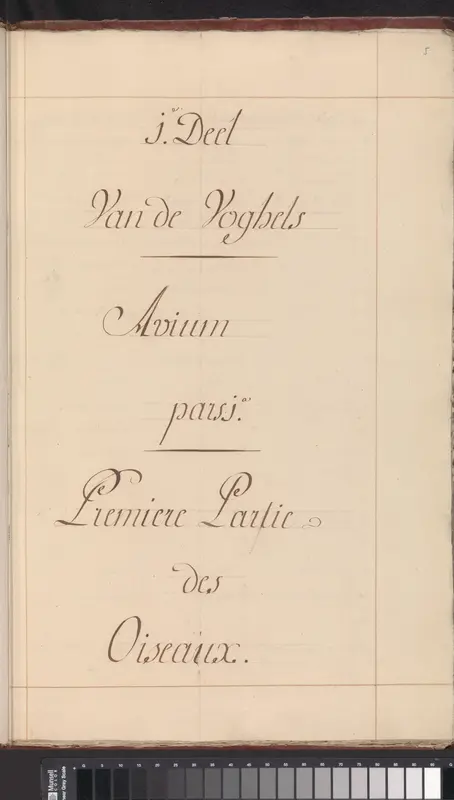 5
j.º Deel
Van de Voghels
Avium
pars j.ª
Premiere Partie
des
Oiseaux.